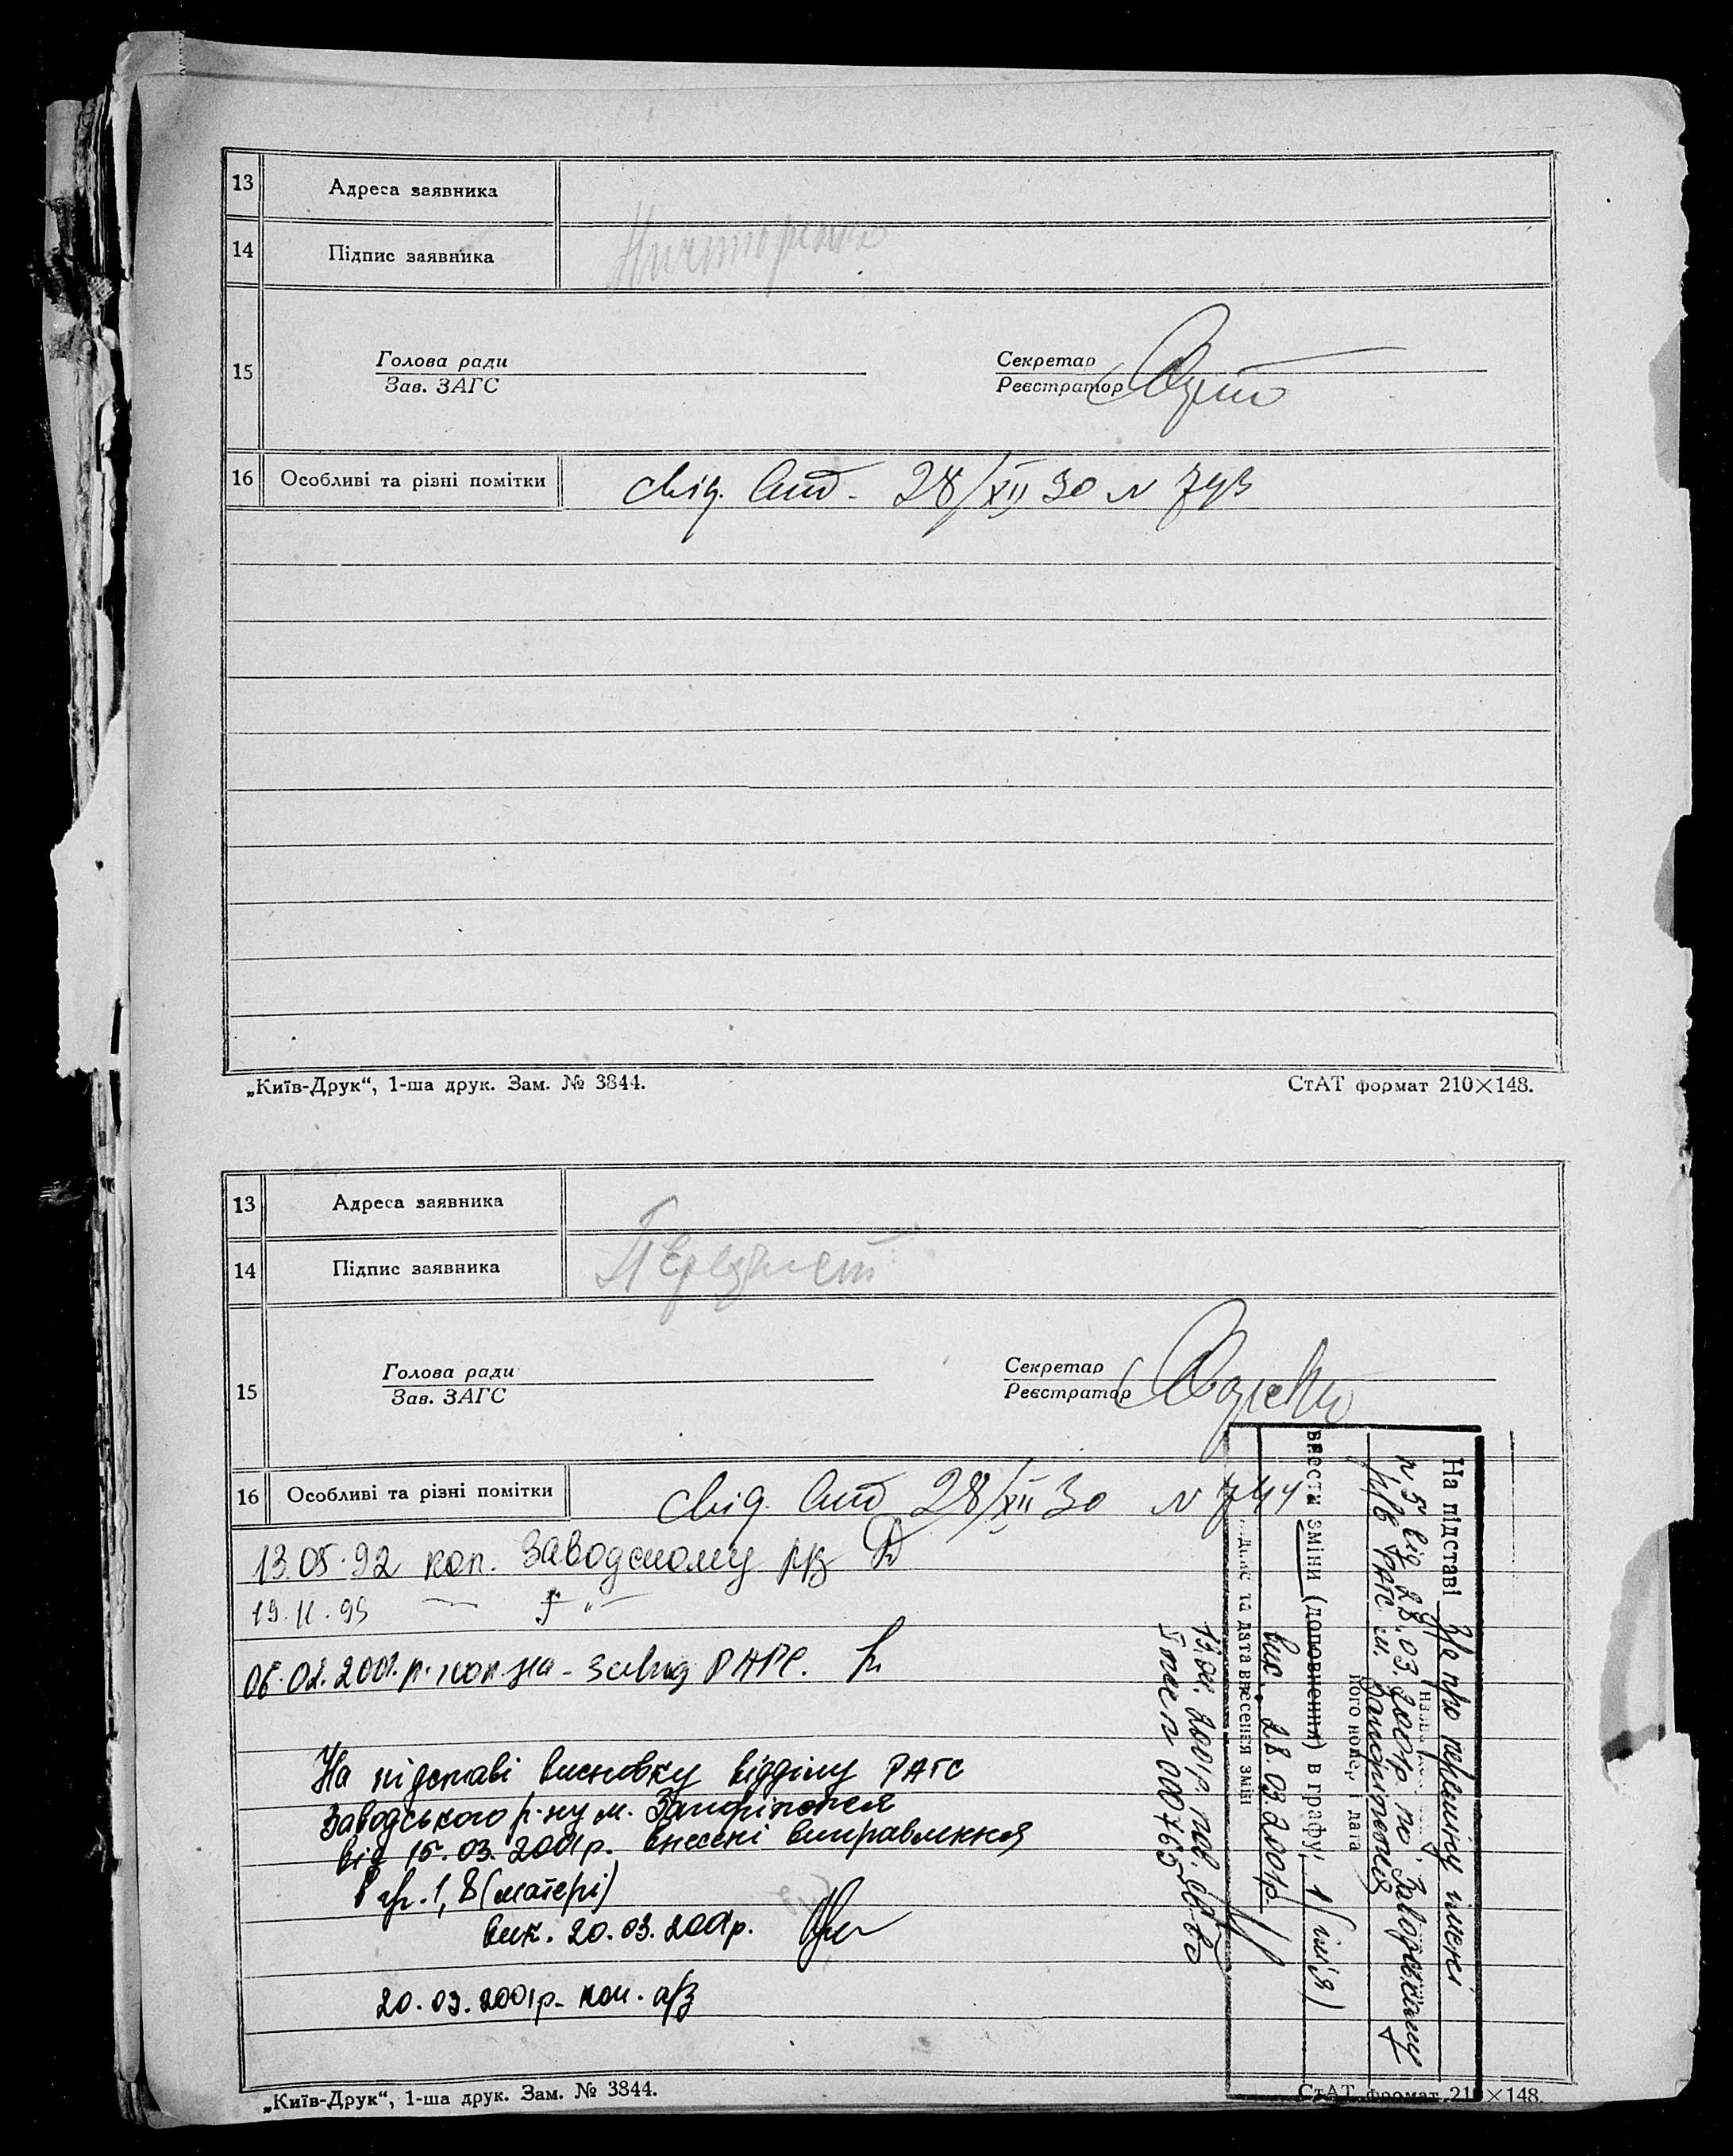 13 Адреса заявника
14 Підпис заявника
15 Голова ради
Зав. ЗАГС
Секретар
Реєстратор
16 Особливі та різні помітки свід. вид. 28/XII 30 N 743
„Київ-Друк“, 1-ша друк. Зам. № 3844. СтАТ формат 210×148.
13 Адреса заявника
14 Підпис заявника
15 Голова ради
Зав. ЗАГС
Секретар
Реєстратор
16 Особливі та різні помітки свід. вид 28/XII 30 N 744
13.05.92 коп. Заводському
19.11.95 — „ —
06.02.2001.р. коп. на -
На підставі висновку відділу РАГС
Заводського р-ну м. Запоріжжя
від 15.03.2001р. внесені виправлення
в гр. 1, 8 (матері)
вик. 20.03.2001р.
20.03.2001р. коп. а/з
На підставі а/з про переміну імені
N 5 від 28.03.2001р. по Заводському
РАГС м. Запоріжжя
його номер і дата
внести зміни (доповнення) в графу 1 (ім'я)
вик. 28.03.2001р.
та дата внесення змін
2001р. пов. св-во
007665